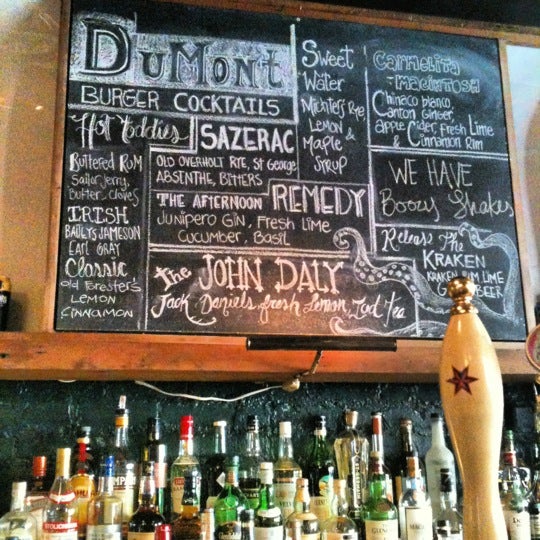 DuMont
BURGER COCKTAILS
Hot Toddies
Buttered Rum
Sailor Jerry,
Butter, Cloves
IRISH
Baileys, Jameson
Earl Gray
Classic
Old Forester's
LEMON
CINNAMON
SAZERAC
OLD OVERHOLT RYE, ST GEORGE
ABSINTHE, BITTERS
THE AFTERNOON REMEDY
JUNIPERO GIN, FRESH LIME
CUCUMBER, BASIL
the JOHN DALY
Jack Daniels, fresh Lemon, Iced tea
Sweet
Water
Michter's Rye
LEMON &
MAPLE
SYRUP
CARMELITA
MACINTOSH
Chinaco blanco,
Canton Ginger,
apple Cider, Fresh Lime
& Cinnamon Rim
WE HAVE
Boozy Shakes
Release The
KRAKEN
KRAKEN RUM, LIME
BEER